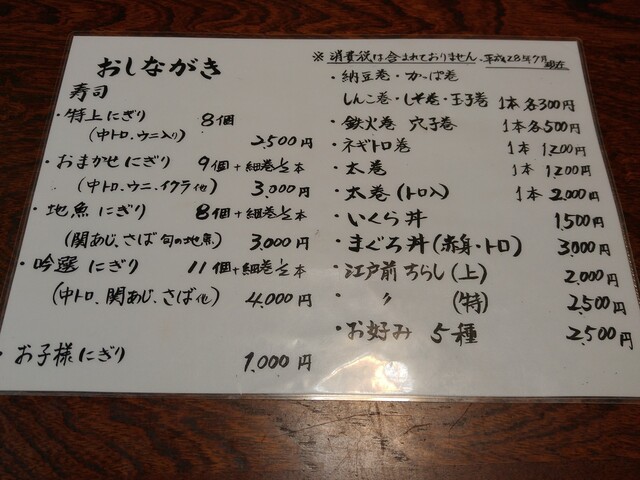 おしながき
寿司
・特上にぎり 8個
(中トロ、ウニ入り) 2,500円
・おまかせにぎり 9個+細巻½本
(中トロ、ウニ、イクラ他) 3,000円
・地魚にぎり 8個+細巻½本
(関あじ、さば 旬の地魚) 3,000円
・吟選にぎり 11個+細巻½本
(中トロ、関あじ、さば他) 4,000円
・お子様にぎり 1,000円
※ 消費税は含まれておりません。平成28年7月現在
・納豆巻・かっぱ巻
しんこ巻・しそ巻・玉子巻 1本各300円
・鉄火巻 穴子巻 1本各500円
・ネギトロ巻 1本 1,200円
・太巻 1本 1,200円
・太巻(トロ入) 1本 2,000円
・いくら丼 1,500円
・まぐろ丼(赤身・トロ) 3,000円
・江戸前ちらし(上) 2,000円
・ 〃 (特) 2,500円
・お好み 5種 2,500円